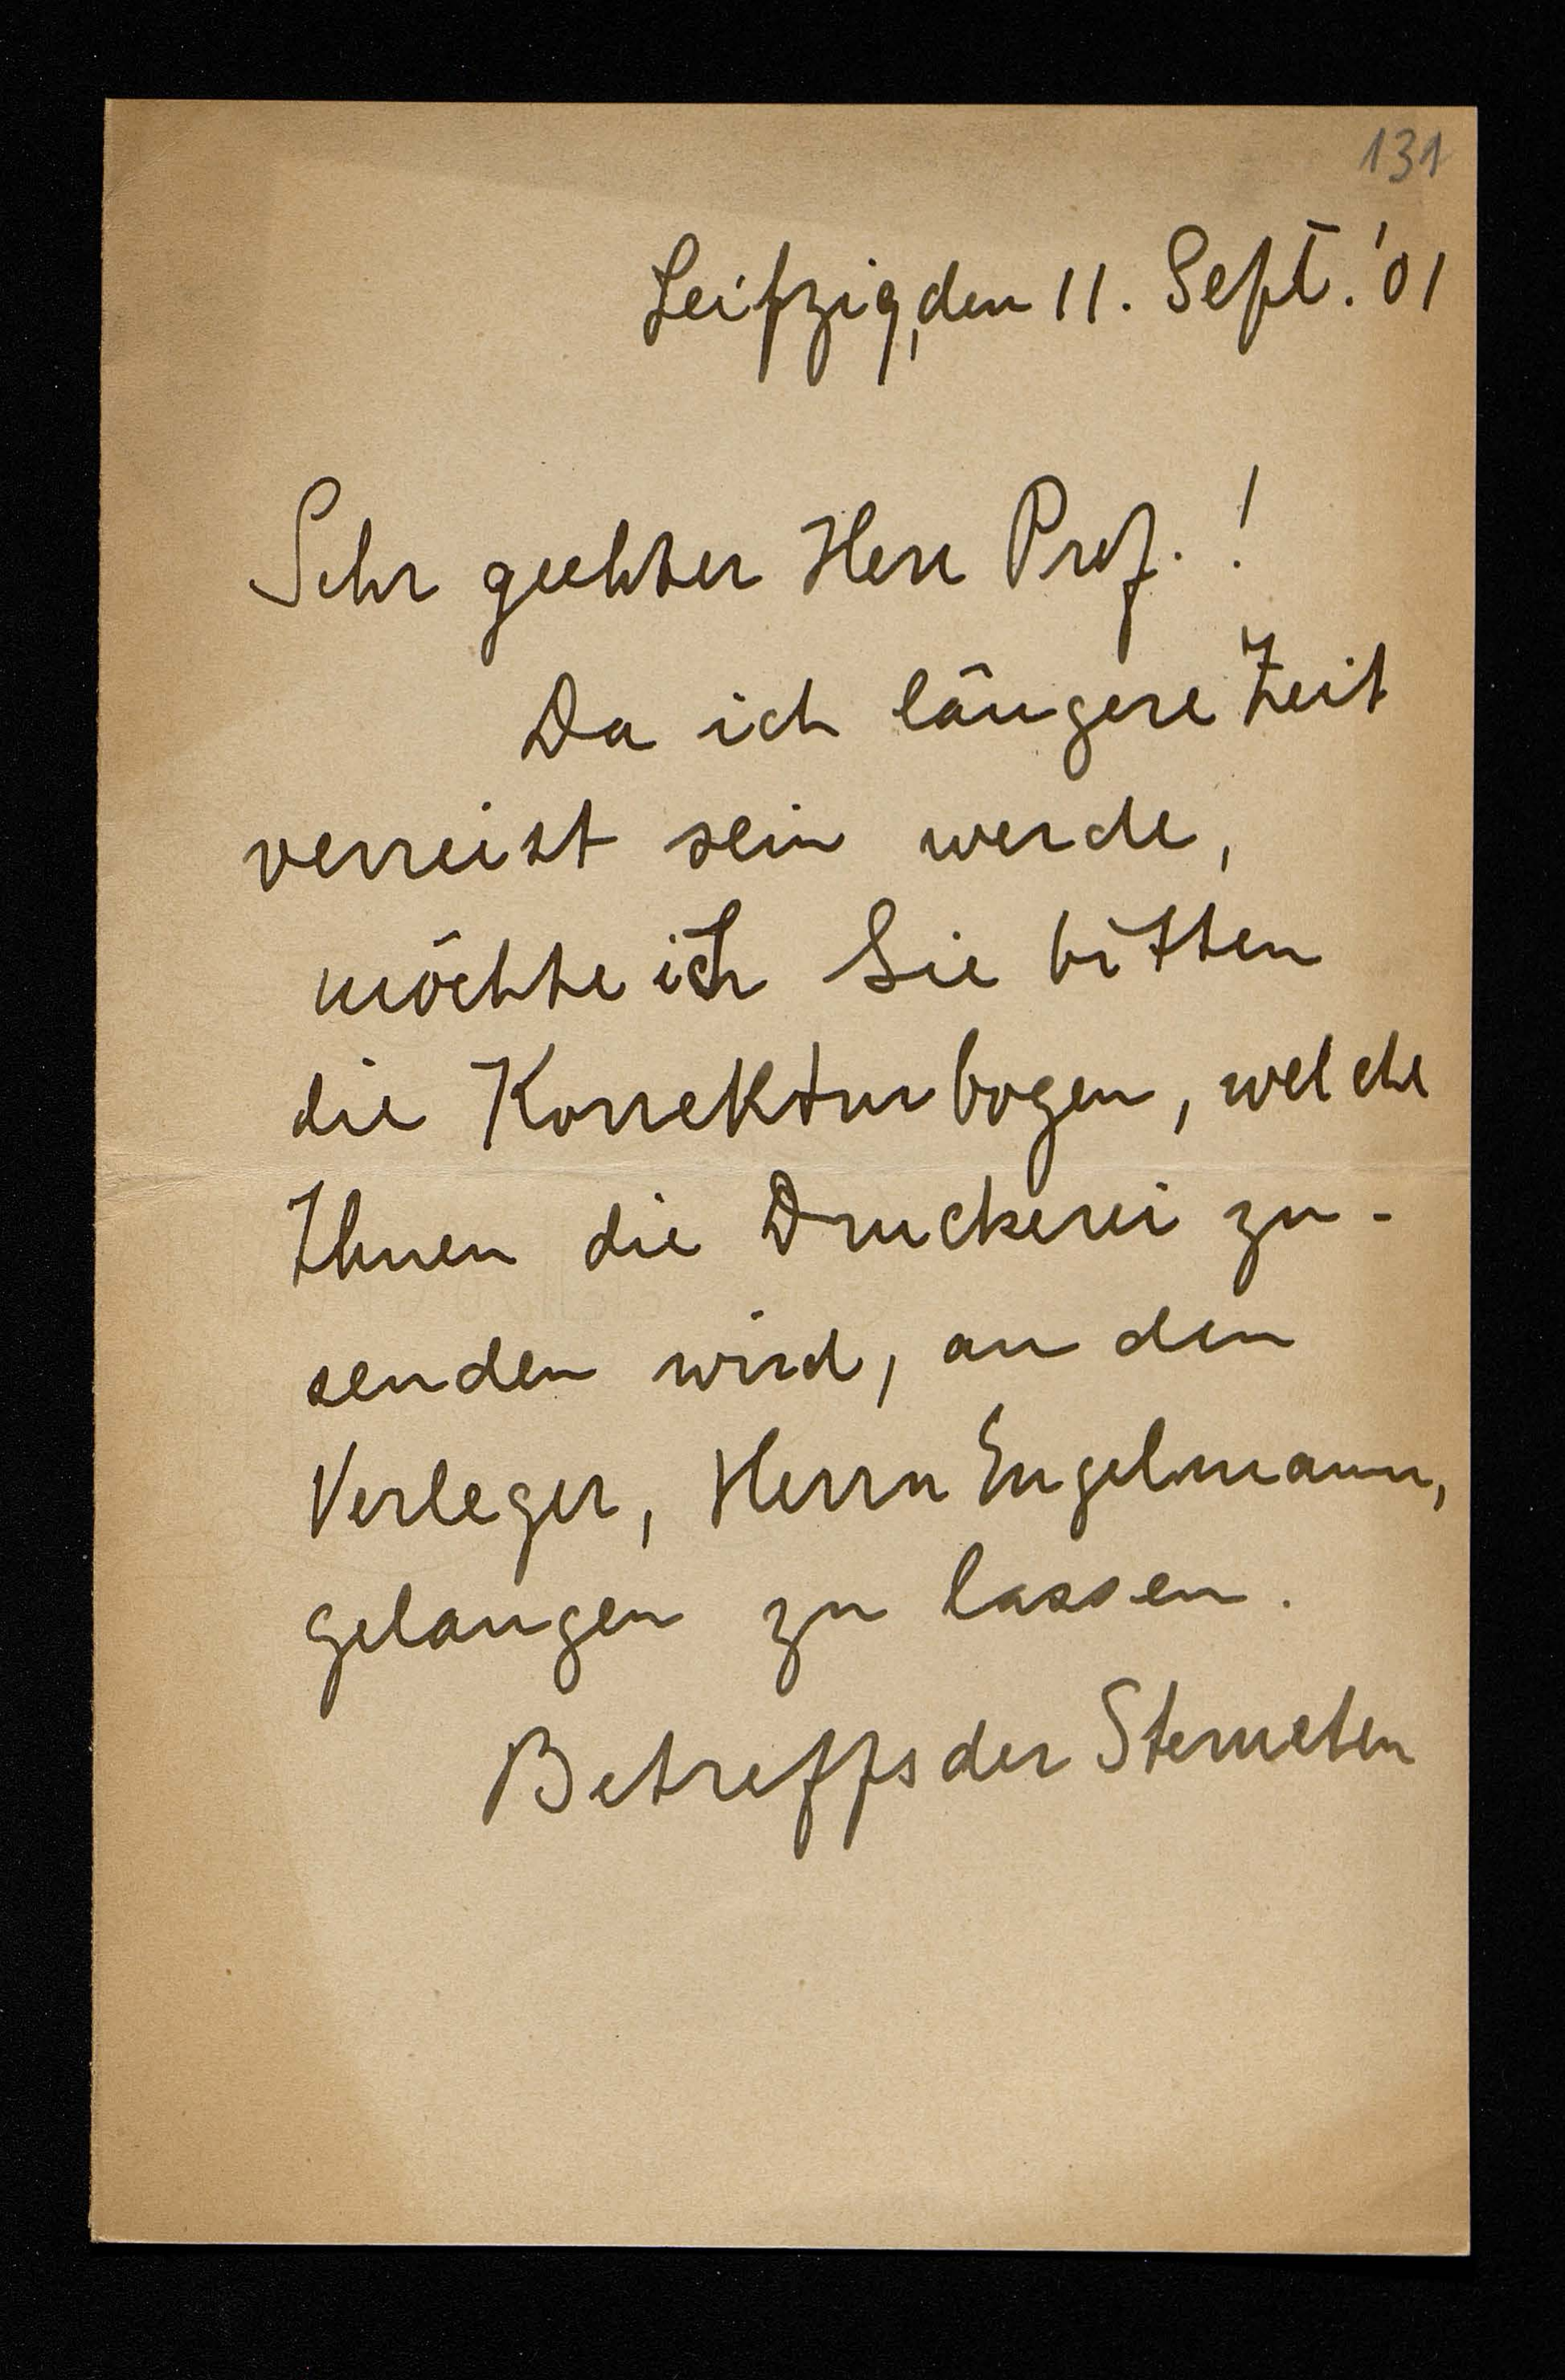 131
Leipzig, den 11. Sept. '01
Sehr geehter Herr Prof. !
Da ich längere Zeit
verreist sein werde,
möchte ich Sie bitten
die Korrekturbogen, welche
Ihnen die Druckerei zu-
senden wird, an den
Verleger, Herrn Engelmann,
gelangen zu lassen.
Betreffs der